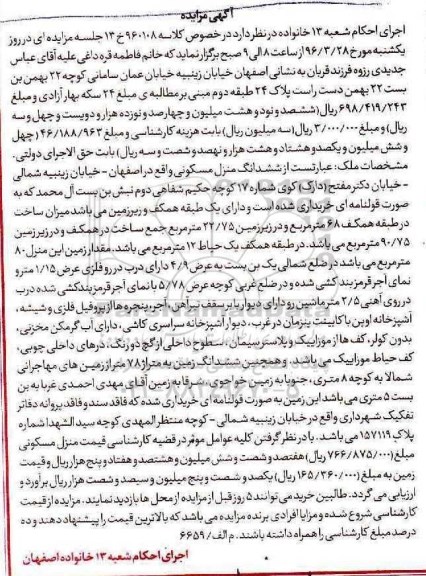 آگهی مزایده
اجرای احکام شعبه ۱۳ خانواده در نظر دارد در خصوص کلاسه ۹۶۰۱۰۸ خ ۱۳ جلسه مزایده ای در روز
یکشنبه مورخ ۹۶/۳/۲۸ از ساعت ۸ الی ۹ صبح برگزار نماید که خانم فاطمه قره داغی علیه آقای عباس
جدیدی رزوه فرزند قربان به نشانی اصفهان خیابان زینبیه خیابان عمان سامانی کوچه ۲۲ بهمن بن
بست ۲۲ بهمن دست راست پلاک ۲۴ طبقه دوم مبنی بر مطالبه ی مبلغ ۲۴ سکه بهار آزادی و مبلغ
۶۹۸/۴۱۹/۲۴۳ ریال (ششصد و نود و هشت میلیون و چهارصد و نوزده هزار و دویست و چهل و سه
ریال) و مبلغ ۳/۰۰۰/۰۰۰ ریال (سه میلیون ریال) بابت هزینه کارشناسی و مبلغ ۴۶/۱۸۸/۹۶۳ (چهل
و شش میلیون و یکصد و هشتاد و هشت هزار و نهصد و شصت و سه ریال) بابت حق الاجرای دولتی.
مشخصات ملک: عبارتست از ششدانگ منزل مسکونی واقع در اصفهان - خیابان زینبیه شمالی
- خیابان دکتر مفتح (دارک) کوی شماره ۱۷ کوچه حکیم شفاهی دوم نبش بن بست آل محمد که به
صورت قولنامه ای خریداری شده است و دارای یک طبقه همکف و زیرزمین می باشد میزان ساخت
در طبقه همکف ۶۸ مترمربع و در زیرزمین ۲۲/۷۵ مترمربع جمع ساخت در همکف و در زیرزمین
۹۰/۷۵ مترمربع می باشد. در طبقه همکف یک حیاط ۱۲ مترمربع می باشد. مقدار زمین این منزل ۸۰
مترمربع می باشد در ضلع شمالی یک بن بست به عرض ۴/۹ دارای درب دررو فلزی عرض ۱/۱۵ متر و
نمای آجر قرمز بندکشی شده و در ضلع غربی کوچه عرض ۵/۷۸ با نمای آجر قرمز بندکشی شده درب
در روی آهنی ۳/۵ متر ماشین رو دارای دیوار باربر سقف تیرآهن، آجر، پنجره ها از پروفیل فلزی و شیشه،
آشپزخانه اوپن با کابینت بنزمان در غرب، دیوار آشپزخانه سراسری کاشی، دارای آب گرمکن مخزنی،
بدون کولر، کف ها از موزاییک و پلاستر سیمان، سطوح داخلی از گچ دوزنگ، درهای داخلی چوبی،
کف حیاط موزاییک می باشد. و همچنین ششدانگ زمین به متراژ ۷۸ متر از زمین های مهاجرانی
شمالا به کوچه ۸ متری، جنوبا به زمین خواجوی، شرقا به زمین آقای مهدی احمدی غربا به بن
بست ۵ متری می باشد این زمین به صورت قولنامه ای خریداری شده که فاقد سند و فاقد پروانه دفاتر
تفکیک شهرداری واقع در خیابان زینبیه شمالی - کوچه منتظر المهدی کوچه سید الشهدا شماره
پلاک ۱۵۷۱۱۹ می باشد. با در نظر گرفتن کلیه عوامل موثر در قضیه کارشناسی قیمت منزل مسکونی
مبلغ (۷۶۶/۸۷۵/۰۰۰ ریال) هفتصد و شصت و شش میلیون و هشتصد و هفتاد و پنج هزار ریال و قیمت
زمین به مبلغ (۱۶۵/۳۶۰/۰۰۰ ریال) یکصد و شصت و پنج میلیون و سیصد و شصت هزار ریال برآورد و
ارزیابی می گردد. طالبین خرید می توانند ۵ روز قبل از مزایده از محل ها بازدید نمایند. مزایده از قیمت
کارشناسی شروع شده و مزایا افرادی برنده مزایده می باشد که بالاترین قیمت را پیشنهاد دهند و ده
درصد مبلغ کارشناسی را همراه داشته باشند. م الف/ ۶۶۵۹
اجرای احکام شعبه ۱۳ خانواده اصفهان